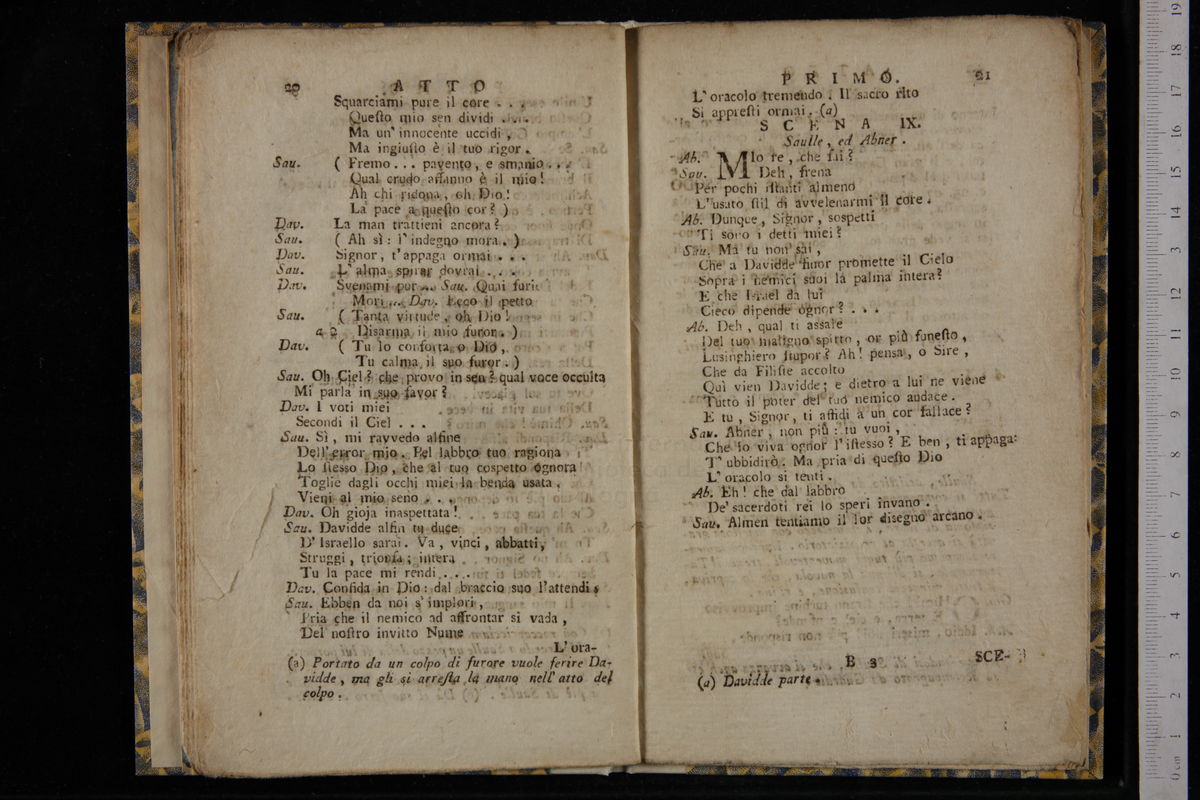 20 ATTO
Squarciami pure il core . . .
Queſto mio sen dividi . . .
Ma un' innocente uccidi ,
Ma ingiuſto è il tuo rigor .
Sau. ( Fremo . . . pavento , e smanio . . .
Qual crudo affanno è il mio !
Ah chi ridona , oh Dio !
La pace a queſto cor ? )
Dav. La man trattieni ancora ?
Sau. ( Ah sì : l' indegno mora . )
Dav. Signor , t' appaga ormai . . .
Sau. L' alma spirar dovrai . . .
Dav. Svenami pur . . . Sau. Quai furie
Mori . . . Dav. Ecco il petto
Sau. ( Tanta virtude , oh Dio !
a 2 Disarma il mio furor . )
Dav. ( Tu lo conforta , o Dio ,
Tu calma il suo furor . )
Sau. Oh Ciel ? che provo in sen ? qual voce occulta
Mi parla in suo favor ?
Dav. I voti miei
Secondi il Ciel . . .
Sau. Sì , mi ravvedo alfine
Dell' error mio . Pel labbro tuo ragiona
Lo ſtesso Dio , che al tuo cospetto ognora
Toglie dagli occhi miei la benda usata .
Vieni al mio seno . . .
Dav. Oh gioja inaspettata !
Sau. Davidde alfin tu duce
D' Israello sarai . Va , vinci , abbatti ,
Struggi , trionfa ; intera
Tu la pace mi rendi . . .
Dav. Confida in Dio : dal braccio suo l' attendi .
Sau. Ebben da noi s' implori ,
Pria che il nemico ad affrontar si vada ,
Del noſtro invitto Nume
L' ora-
(a) Portato da un colpo di furore vuole ferire Da-
vidde , ma gli si arreſta la mano nell' atto del
colpo .
PRIMO. 21
L' oracolo tremendo . Il sacro rito
Si appreſti ormai . (a)
SCENA IX.
Saulle , ed Abner .
Ab. MIo re , che fai ?
Sau. Deh , frena
Per pochi iſtanti almeno
L' usato ſtil di avvelenarmi il core .
Ab. Dunque , Signor , sospetti
Ti sono i detti miei ?
Sau. Ma tu non sai ,
Che a Davidde finor promette il Cielo
Sopra i nemici suoi la palma intera ?
E che Israel da lui
Cieco dipende ognor ? . . .
Ab. Deh , qual ti assale
Del tuo maligno spirto , or più funeſto ,
Lusinghiero ſtupor ? Ah ! pensa , o Sire ,
Che da Filiſtei accolto
Quì vien Davidde ; e dietro a lui ne viene
Tutto il poter del tuo nemico audace .
E tu , Signor , ti affidi a un cor fallace ?
Sau. Abner , non più : tu vuoi ,
Che io viva ognor l' iſtesso ? E ben , ti appaga :
T' ubbidirò . Ma pria di queſto Dio
L' oracolo si tenti .
Ab. Eh ! che dal labbro
De' sacerdoti rei lo speri invano .
Sau. Almen tentiamo il lor disegno arcano .
B 3 SCE-
(a) Davidde parte .